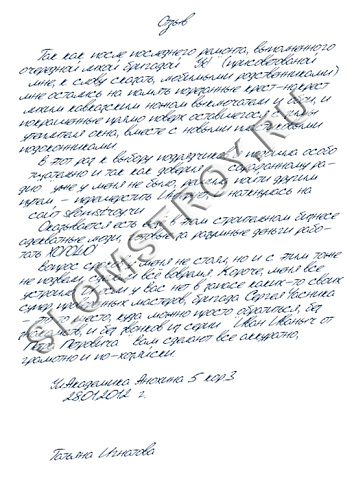 Отзыв
Так как после последнего ремонта, выполненного
очередной лихой бригадой "Ух" (присоветованной
мне, к слову сказать, любимыми родственниками)
мне остались на память порезанные крест-накрест
лихим кавказским ножом выключатели и
покрашенные прямо поверх оставшегося с зимы
утеплителя окна, вместе с новыми
подоконниками.
В этот раз к выбору подрядчика я подошла особо
тщательно и так как доверия к сарафанному ра-
дио уже у меня не было, решила пойти другим
путем, - перешерстив Интернет, наткнулась на
сайт slomstroy.ru
Оказывается есть в этом строительном бизнесе
адекватные люди, готовые за разумные деньги рабо-
тать ХОРОШО
Вопрос у меня не стоял, но и с этим тоже
не подвели все вовремя. Короче, меня все
устроило, у вас нет в запасе каких-то своих
супер мастеров, бригада Сергея
- это место, куда можно просто обратиться, без
и без звонков из серии "Иван Иваныч от
Петровича" Вам сделают все аккуратно,
грамотно и по-хозяйски.
Ул. Академика Анохина 5 кор 3
28.01.2012 г.
Татьяна Игнатова
SLOMSTROY.RU